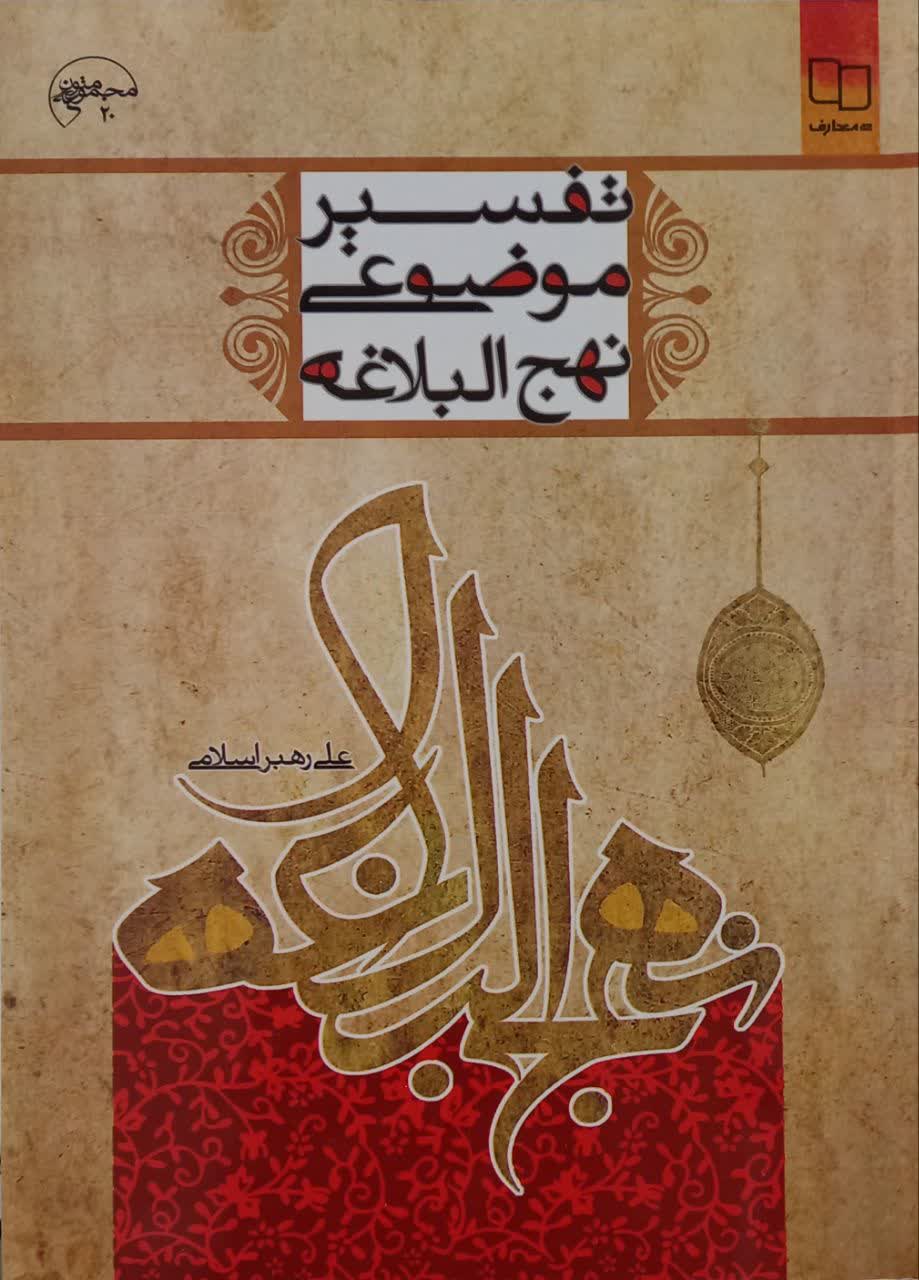 معارف
مجموعه متون
۲۰
تفسیر
موضوعی
نهج البلاغه
علی رهبر اسلامی
نهج البلاغه